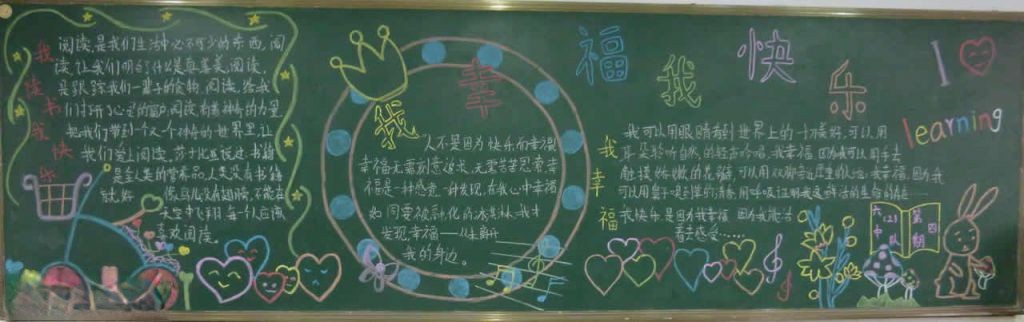 我读书我快乐
阅读,是我们生活中必不可少的东西,阅
读,让我们明白了什么是真善美,阅读,
是跟踪我们一辈子的食物,阅读,给我
们打开了心灵的窗户,阅读,有着神奇的力量,
把我们带到个又个神奇的世界里,让
我们爱上阅读。莎士比亚说过:书籍
是全人类的营养品,人类没有书籍
就好像鸟儿没有翅膀,不能在
天空中飞翔,每一个人应该
喜欢阅读。
我幸福我快乐
“人不是因为快乐而幸福,
幸福无需刻意追求,无需苦苦思索,幸
福是一种感觉,一种发现,在我心中幸福
如同要被融化的冰淇淋,我才
发现,幸福——从未离开
我的身边。
I
learning
我幸福
我可以用眼睛看到世界上的一切美好,可以用
耳朵聆听自然的轻声吟唱,我幸福,因为我可以用手去
触摸娇嫩的花瓣,可以用双脚
我快乐是因为我幸福,因为我能活
着去感受……
六(2)
中队
第四
期